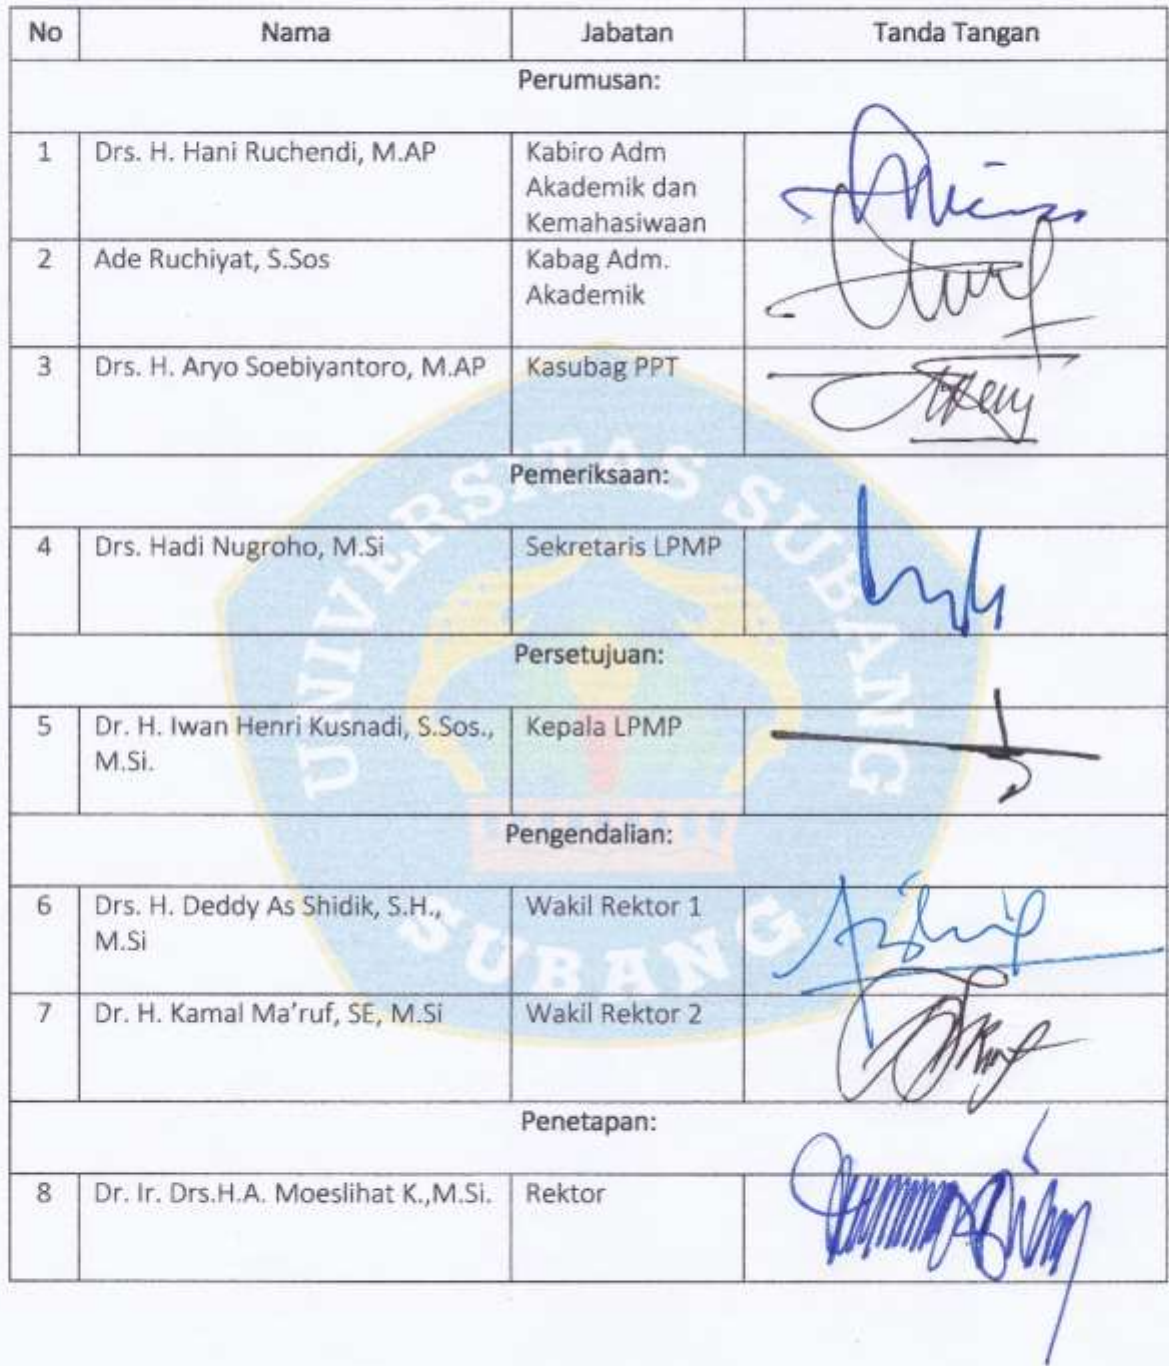 No Nama Jabatan Tanda Tangan
Perumusan:
1 Drs. H. Hani Ruchendi, M.AP Kabiro Adm
Akademik dan
Kemahasiwaan
2 Ade Ruchiyat, S.Sos Kabag Adm.
Akademik
3 Drs. H. Aryo Soebiyantoro, M.AP Kasubag PPT
Pemeriksaan:
4 Drs. Hadi Nugroho, M.Si Sekretaris LPMP
Persetujuan:
5 Dr. H. Iwan Henri Kusnadi, S.Sos., Kepala LPMP
M.Si.
Pengendalian:
6 Drs. H. Deddy As Shidik, S.H., Wakil Rektor 1
M.Si
7 Dr. H. Kamal Ma'ruf, SE, M.Si Wakil Rektor 2
Penetapan:
8 Dr. Ir. Drs.H.A. Moeslihat K.,M.Si. Rektor
UNIVERSITAS SUBANG
SUBANG